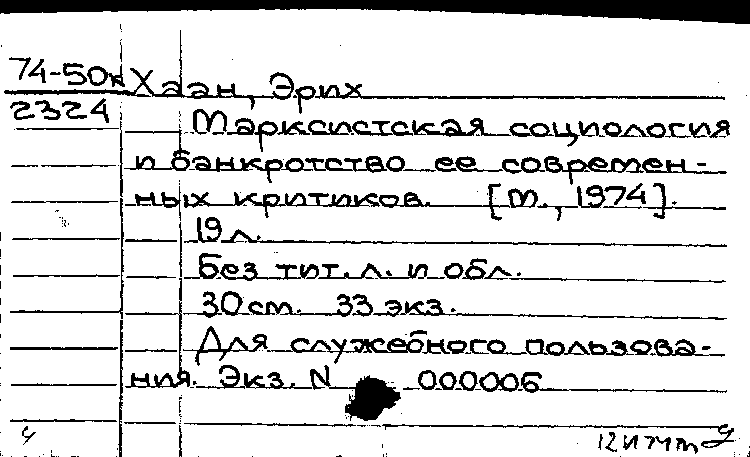 74-50к Хаан, Эрих
2324
Марксистская социология
и банкротство ее современ-
ных критиков. [М., 1974].
19 л.
Без тит. л. и обл.
30 см. 33 экз.
Для служебного пользова-
ния. Экз. N 000006